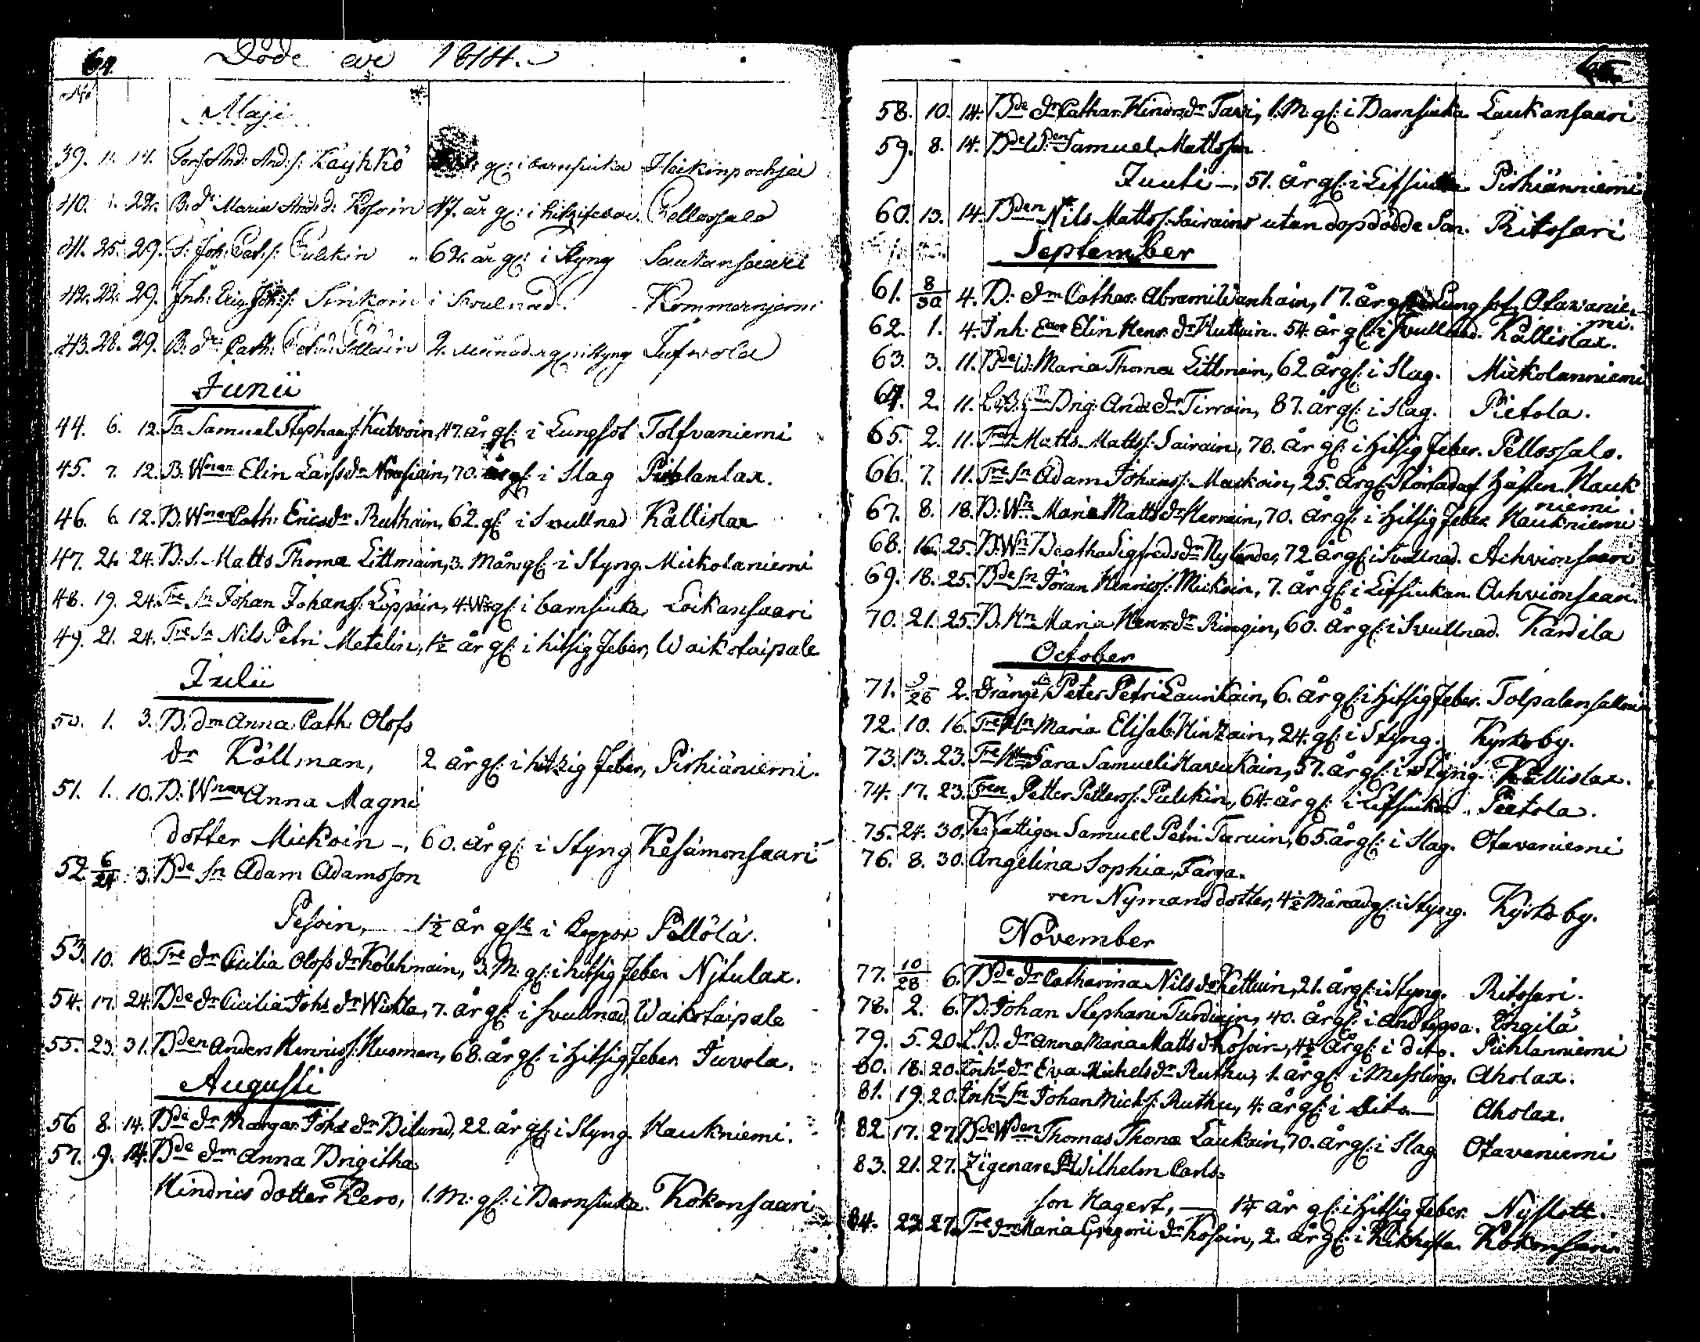 64.
Döde åhr 1814.
No
Maji
39. 11. 14. And: And:s: Käyhkö gl: i barnsiuka Heikinpohja
40. 1. 22. B. dr Maria And:d: Kosoin 47. år gl: i hitzifeber Pellossalo
41. 25. 29. Joh: Pulkin 62. år gl: i Styng Laukansaari
42. 22. 29. Inh: Eric Joh:s: Sinkoin i Svulnad. Kommerniemi
43. 28. 29. B. dr Cath: 2. Månader gl: i Styng Jufwola
Junii
44. 6. 12. Samuel Stephans: Kutvoin, 47. år gl: i Lungsot Tolfvaniemi
45. 7. 12. B. Wman Elin Larsdr Nousiain, 70. år gl: i Slag Pihlanlax.
46. 6 12. B. Wman Cath: Ericsdr Ruthoin, 62. gl: i Svullnad Kallislax
47. 21. 24. B. S. Matts Thomæ Littmain, 3. Mån gl: i Styng Mickolaniemi
48. 19. 24. Tre Sn Johan Johans: Loppoin, 4. W: gl: i barnsiuka Lockansaari
49. 21. 24. Tre Sn Nils Petri Metelin, 1½ år gl: i hitsig feber, Waikotaipale
Julii
50. 1. 3. B. dm Anna Cath: Olofs
dr Köllman, 2 år gl: i hitzig feber, Pirhiäniemi.
51. 1. 10. B. Wman Anna Magni
dotter Mickoin –, 60. år gl: i Styng Kesämonsaari
52. 6/24 3. Bde Sn Adam Adamsson
Pesoin, – 1½ år gl: i koppor Pellölä.
53. 10. 18. Tre dr Cecilia Olofs dr Kolehmain, 3. M. gl: i hitsig feber Niitulax.
54. 17. 24. Bde dr Cicilia Johs dr Wichla, 7. år gl: i svullnad Waikotaipale
55. 23. 31. Bden Anders Henrics: Nusman, 68. år gl: i hitsig feber Juvola.
Augusti
56 8. 14. Bde dr Margar. Johs dr Bilund, 22. år gl: i Styng Haukniemi.
57. 9. 14. Bde dm Anna Brigitha
Hindrics dotter Kero, 1. M: gl: i Barnsiuka. Kokonsaari
58. 10. 14. Bde dr Cathar. Hindrs dr Tavi, 1. M. gl: i Barnsiuka Laukansaari
59. 8. 14. Bde W:den Samuel Mattsson
Juuti –, 51. år gl: i Lifsiuka Pirhiänniemi
60. 13. 14. Bden Nils Matts: Sairains utan dop dödde Son. Ritosari
September
61. 8/30 4. B: dm Cathar. Abrami Wanhain, 17. år gl: i Lungsot. Otavanie
mi.
62. 1. 4. Inh: Elin Henr: dr Huttuin. 54. år gl: i Svullnad. Kallislax.
63. 3. 11. Bde W: Maria Thomæ Littmain, 62 år gl: i Slag. Mickolanniemi
64. 2. 11. Brig: And: dr Tirroin, 87. år gl: i Slag. Pietola.
65. 2. 11. Matts Matts: Sairain, 78. år gl: i hitsig feber. Pellossalo.
66. 7. 11. Tre Sn Adam Johans: Mackoin, 25. år gl: Störtad af hästen. Hauk
niemi
67. 8. 18. B. Wn Maria Matts dr Herrain, 70. år gl: i hitsig feber. Haukniemi.
68. 16. 25. B. Wn Beatha Sigfreds dr Nylander, 72 år gl: i Svullnad. Achvionsaari
69. 18. 25. Bde Sn Jöran Henrics: Mickoin, 7. år gl: i Lifsiukan Achvionsaari.
70. 21. 25. B. Hn Maria Henr: dr Ringin, 60. år gl: i Svullnad. Kardila
October
71. 9/26 2. Dräng: Sn Peter Petri Laurikain, 6. år gl: i hitsig feber. Tolpalansallmi
72. 10. 16. Tre Hn Maria Elisab: Hintzain, 24. gl: i Styng. Kyrkoby.
73. 13. 23. Tre Hn Sara Samueli Havukain, 57. år gl: i Styng. Kallislax.
74. 17. 23. Tren Petter Petters: Pulkin, 64. år gl: i Lifsiuka. Pietola.
75. 24. 30. Fattigen Samuel Petri Taruin, 65. år gl: i Slag. Otavaniemi
76. 8. 30. Angelina Sophia, Färga-
ren Nymans dotter, 4½ Månad gl: i Styng. Kyrkoby.
November
77. 10/28 6. Bde dr Catharina Nils dr Kettuin, 21. år gl: i Styng. Ritosari.
78. 2. 6. B. Johan Stephani Turdiain, 40. år gl: i andteppa. Engilä
79. 5. 20. L.B. dr Anna Maria Matts d Kosoin, 4½ år gl: i dito. Pihlanniemi
80. 18. 20. Inhs dr Eva Michels dr Ruthu, 1. år gl: i Messling. Aholax.
81. 19. 20. Inhs Sn Johan Mick:s: Ruthu, 4. år gl: i dito – Aholax.
82 17. 27. Bde Wden Thomas Thomæ Laukain, 70. år gl: i Slag Otavaniemi
83. 21. 27. Zigenare Sn Wilhelm Carls-
son Hagert, – 1¼ år gl: i hitsig feber. Nyslott.
84. 22. 27. Tre dr Maria Gregorii dr Kosoin, 2. år gl: i kikhosta. Kokonsari.